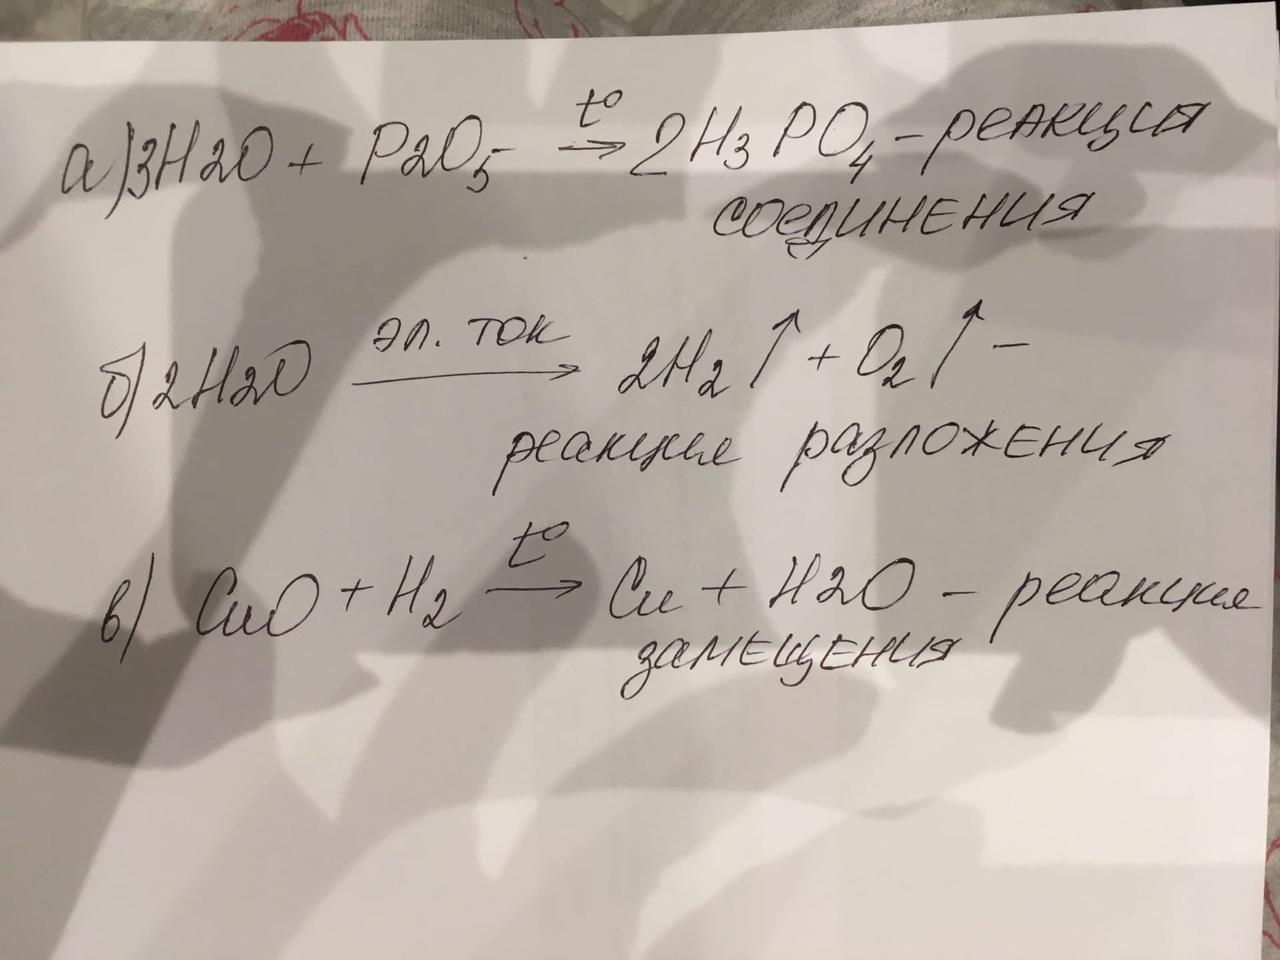 а) 3H2O + P2O5 t° → 2H3PO4 – реакция
соединения
б) 2H2O эл. ток → 2H2↑ + O2↑ –
реакция разложения
в) CuO + H2 t° → Cu + H2O – реакция
замещения